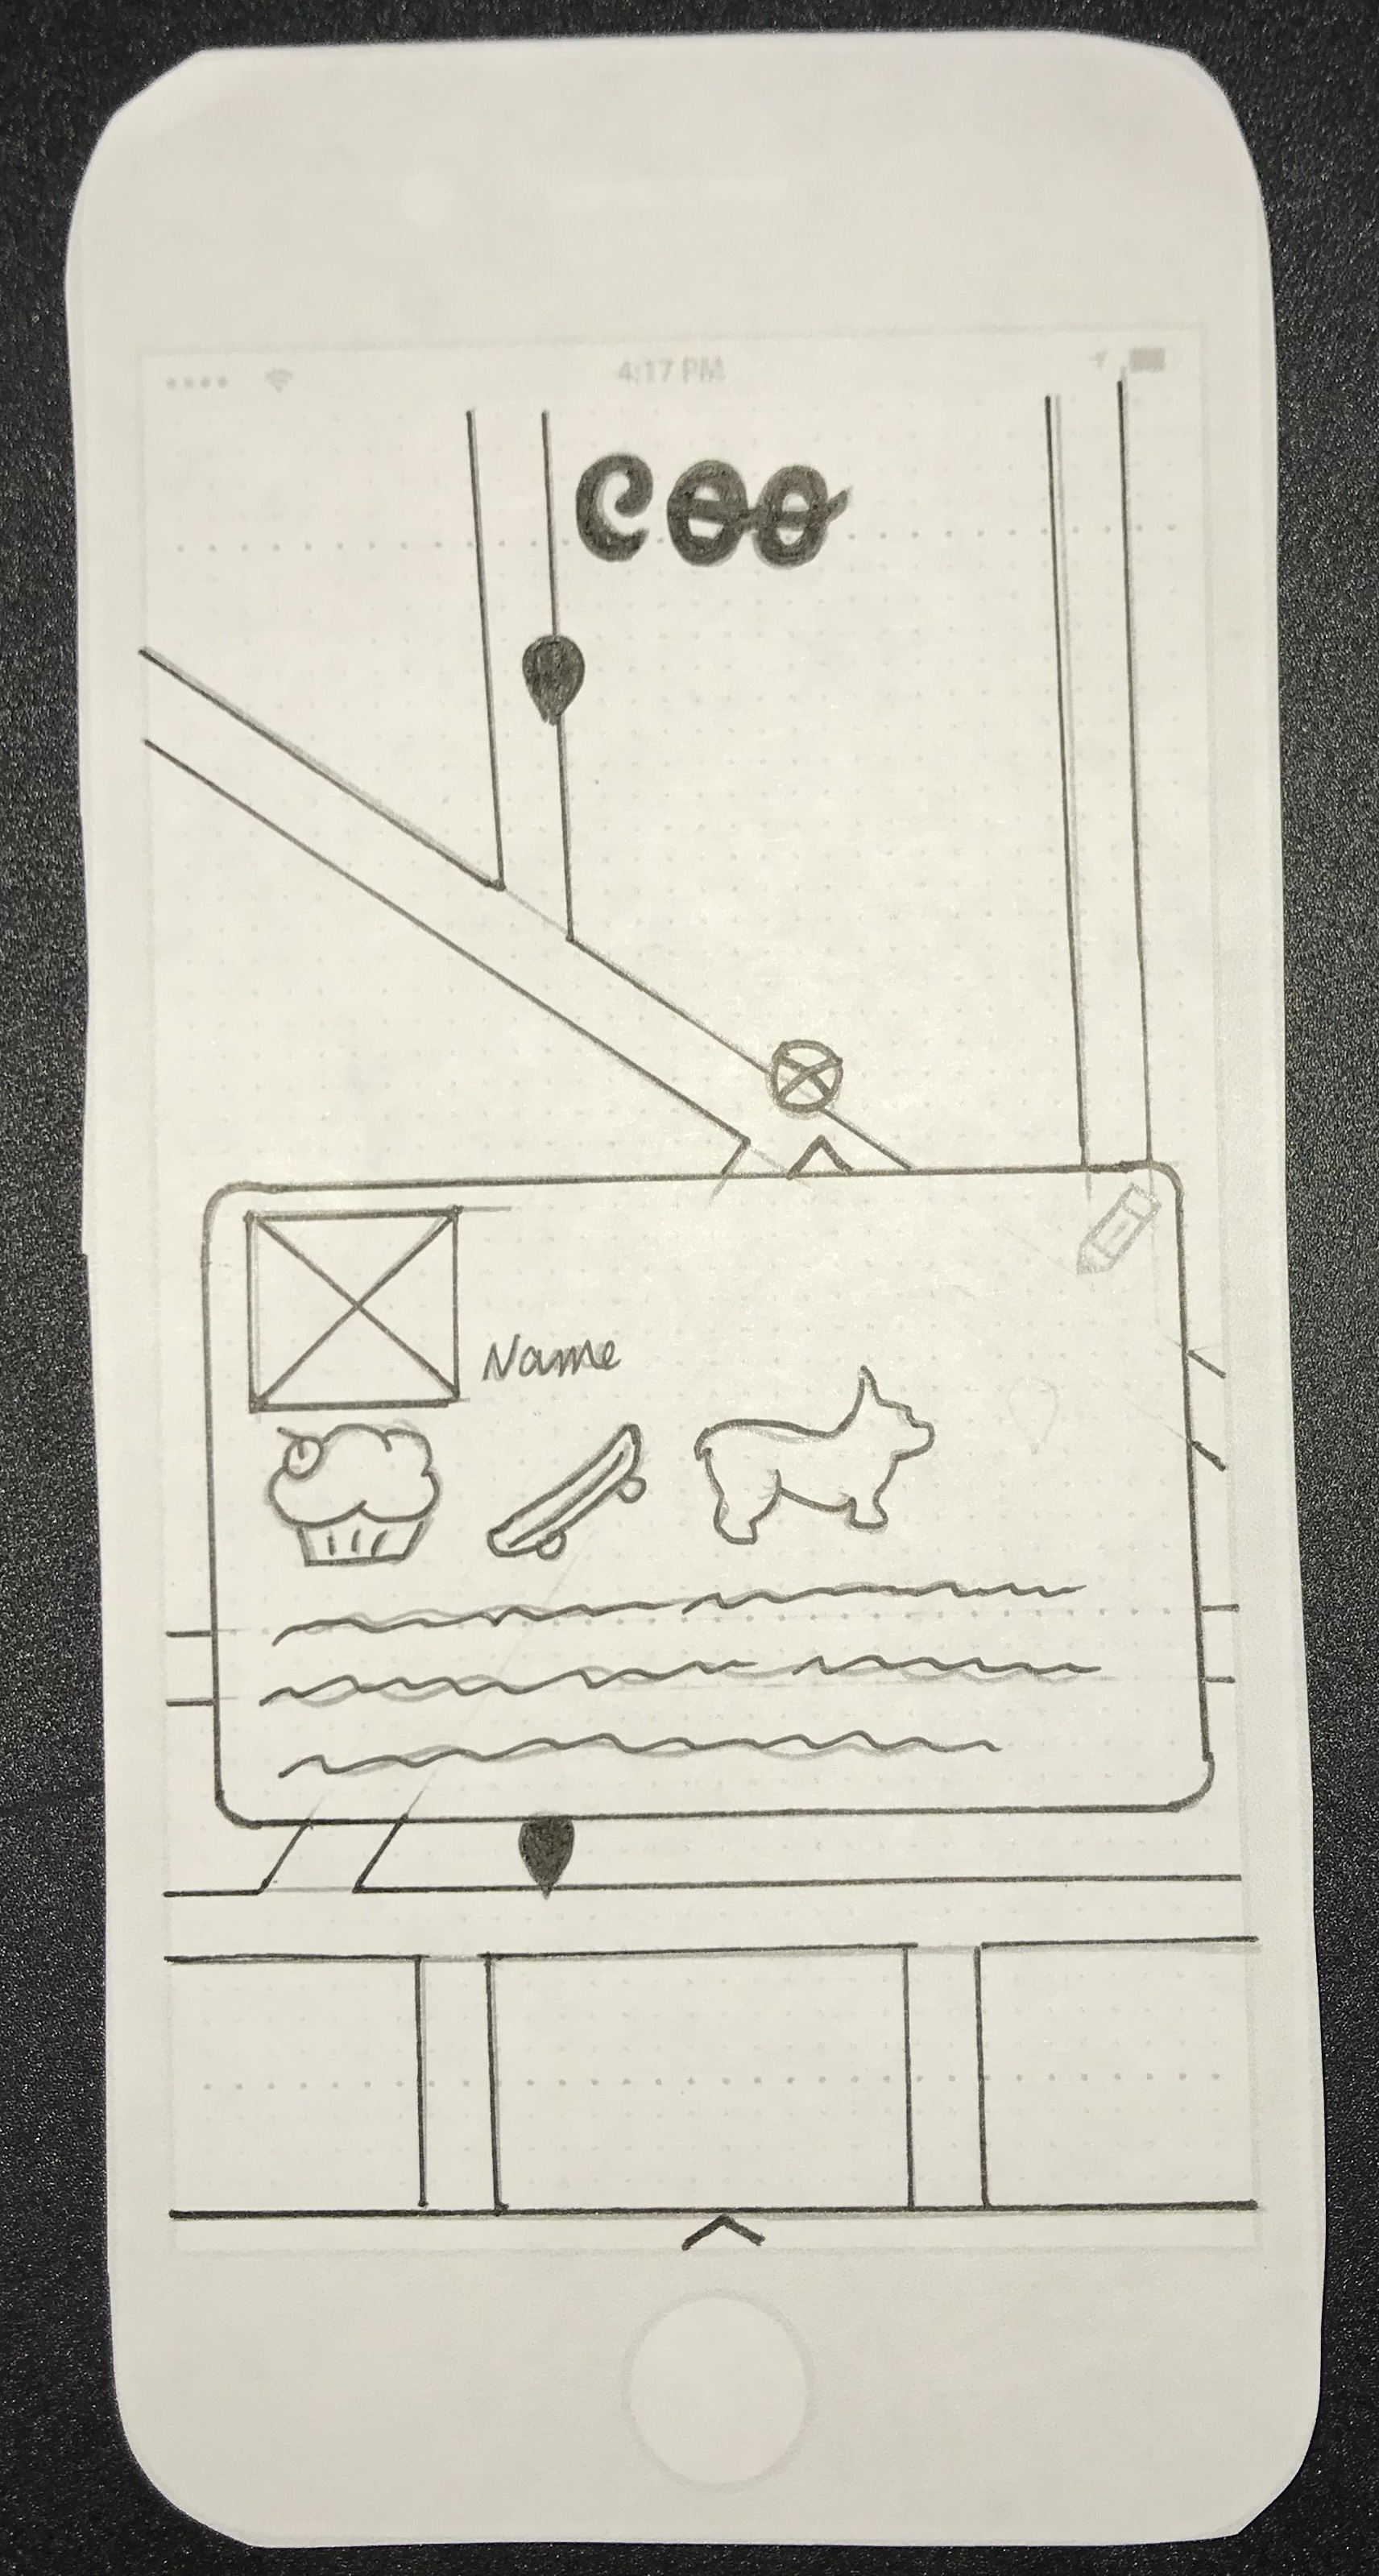 4:17 PM
COO
Name